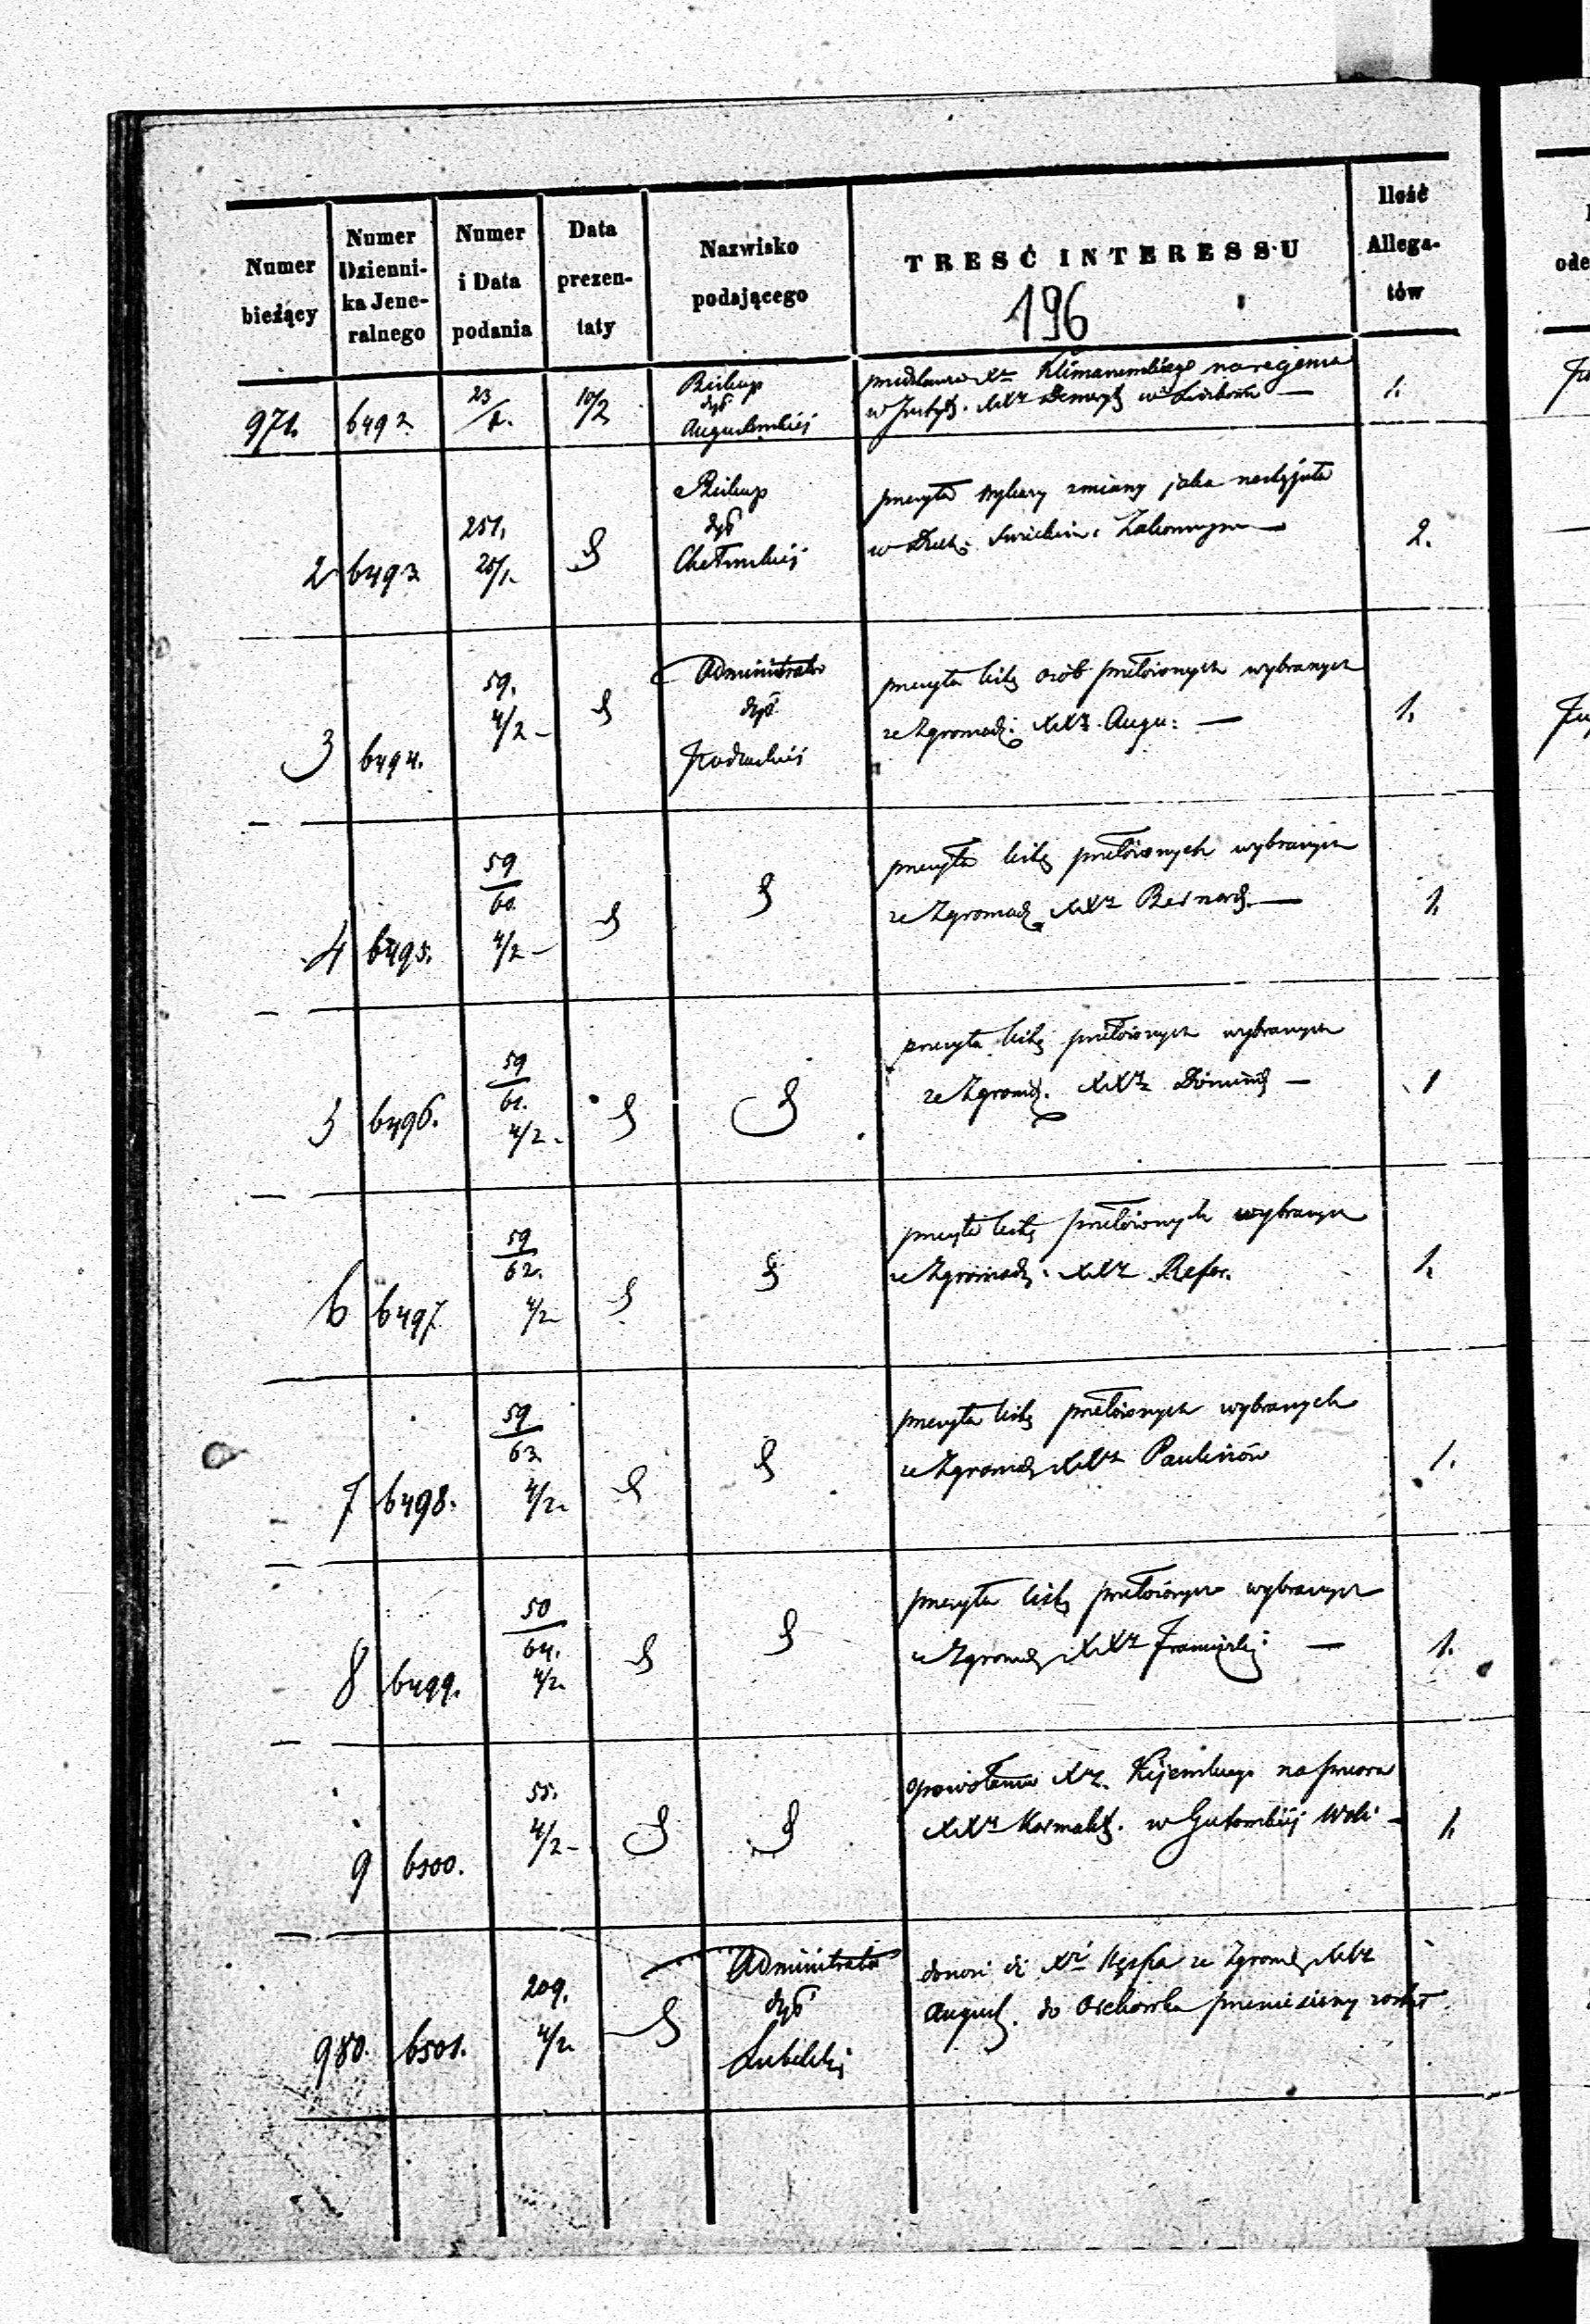 Numer bieżący
Numer Dzienni-ka Jene-ralnego
Numer i Data podania
Data prezen-taty
Nazwisko podającego
TREŚĆ INTERESSU
Ilość Allega-tów
196
971. 6492. 23/1. 10/2 Biskup dyé Augustowskiej
w Instyt. XXży Demeryt w 1.
2 6493 251. 25/1. Biskup dyé Chełmskiej
przesyła wykazy zmiany jaka nastąpiła
w Duch: Swieckim i Zakonnym — 2.
3 6494. 59. 4/2 – Administrator dyé Podlaskiej
przesyła listę osób przełożonych wybranych
ze Zgromadz: XXży Augu: — 1.
4 6495. 59/60. 4/2 –
przesyła listę przełożonych wybranych
ze Zgromadz XXży Bernard. — 1.
5 6496. 59/61. 4/2 –
przesyła listę przełożonych wybranych
ze Zgromdz. XXży Dominik — 1
6 6497 59/62. 4/2
przesyła listę przełożonych wybranych
ze Zgromadz: XXży Refor. 1.
7 6498. 59/63 4/2.
przesyła listę przełożonych wybranych
ze Zgromadz XXży Paulinów 1.
8 6499. 50/64. 4/2.
przesyła listę przełożonych wybranych
ze Zgromadz XXży Franciszk: — 1.
9 6500. 55. 4/2 –
o powołaniu Xdza Kijewskiego na przeora
XXży Karmelit. w Woli – 1.
980. 6501. 209. 4/2. Administrator dyé Lubelskiej
donosi iż Xdz ze Zgromadz XXży
August. do Orchówka przeniesiony został.